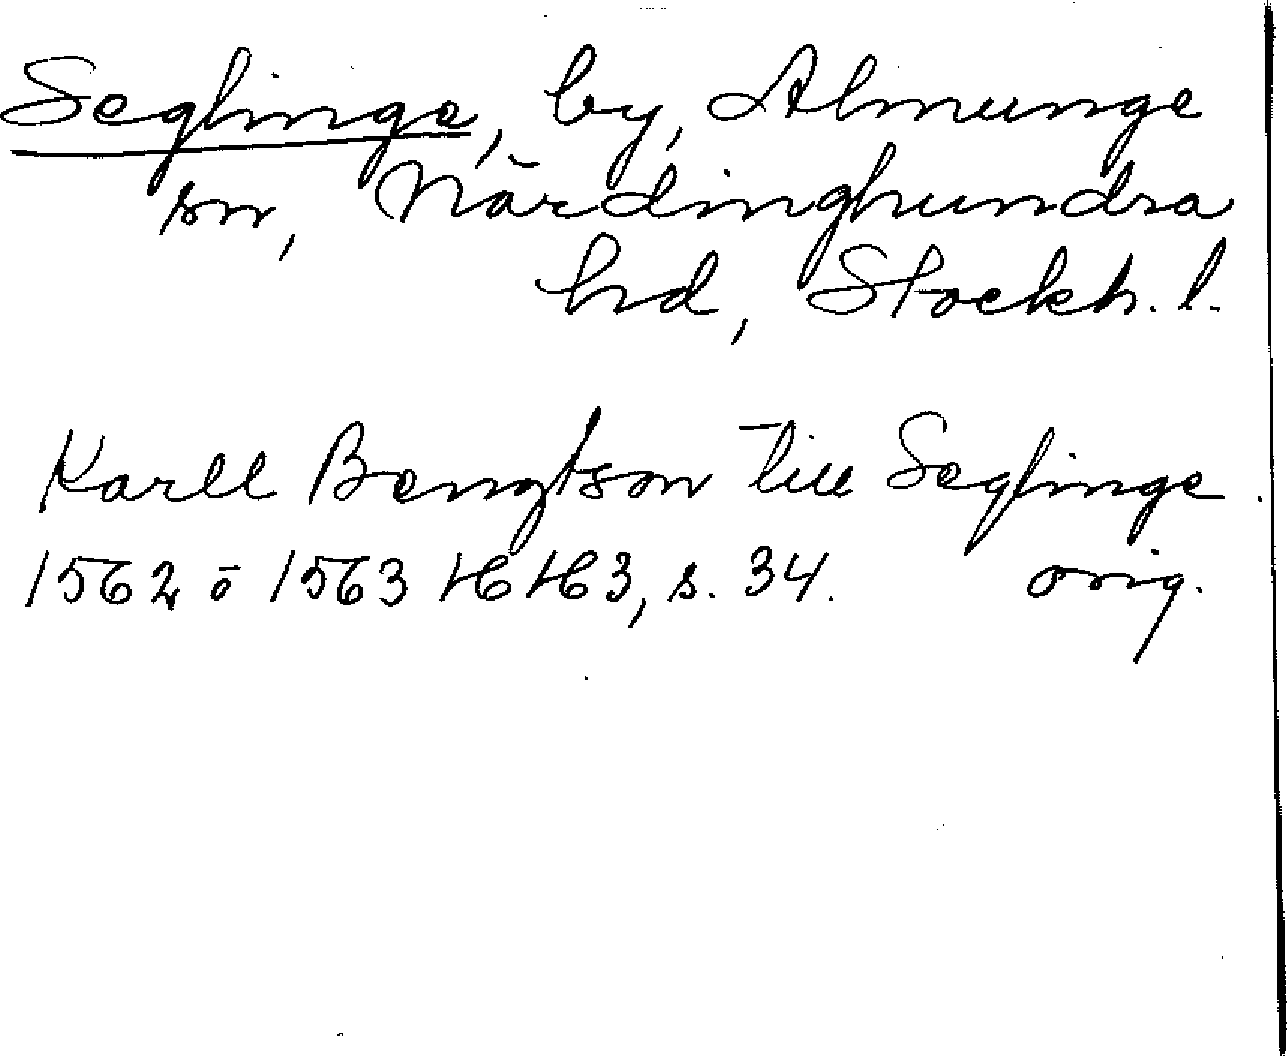 Seglinge, by, Almunge
sn, Närdinghundra
hd, Stockh. l.
Karll Bengtson till Seglinge
1562 ö 1563 HH3, s. 34. orig.